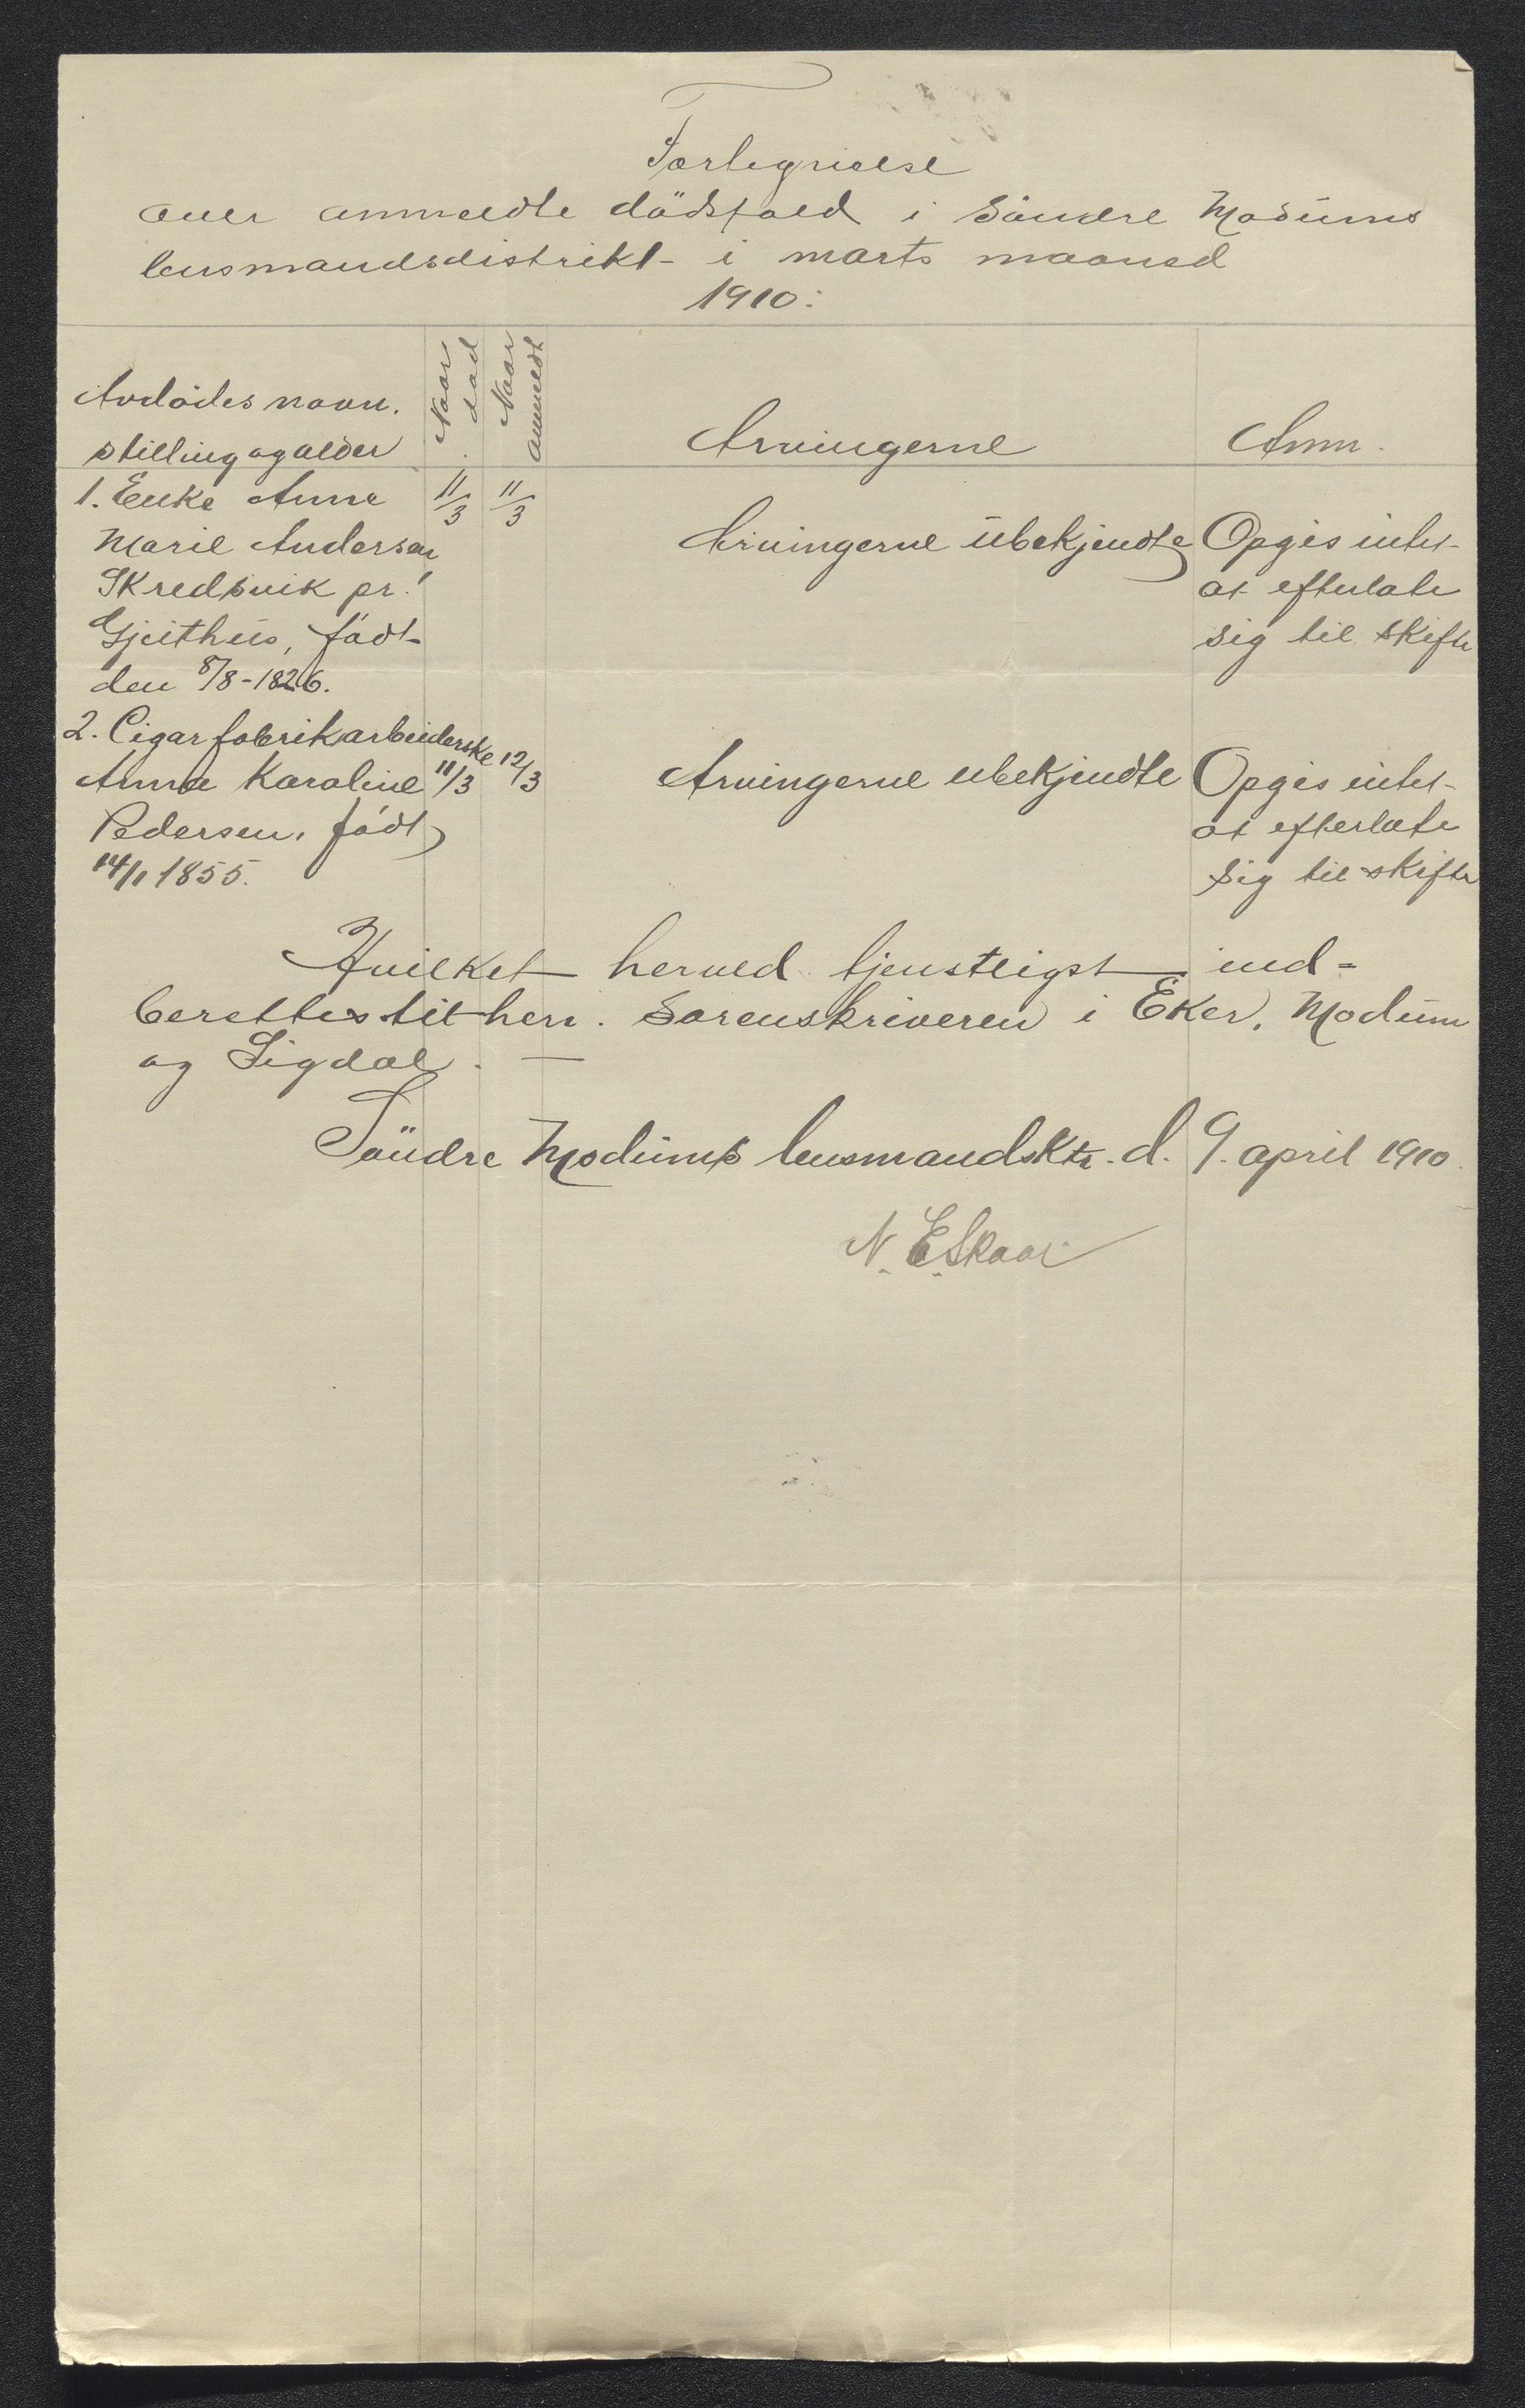 Fortegnielse
over anmeldte dödsfald i Söndre Modums
lensmandsdistrikt i marts maaned
1910:
Avdödes navn, stilling og alder
Naar död
Naar anmeldt
Arvingerne
Anm.
1. Enke Anne 11/3 11/3
Marie Andersen Arvingerne ubekjendte Opgis intet
Skredsvik pr. at efterlate
Gjeithus, födt sig til skifte
den 8/8-1826.
2. Cigarfabrikarbeiderske 12/3
Anna Karoline 11/3 Arvingerne ubekjendte Opgis intet
Pedersen, födt at efterlate
14/1 1855. sig til skifte
Hvilket herved tjenstligst ind=
berettes til herr. Sorenskriveren i Eker, Modum
og Sigdal. —
Söndre Modums lensmandsktr. d. 9. april 1910.
N. E. Skaar